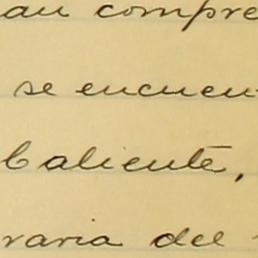 au compre
se encuen
Caliente,
raria del